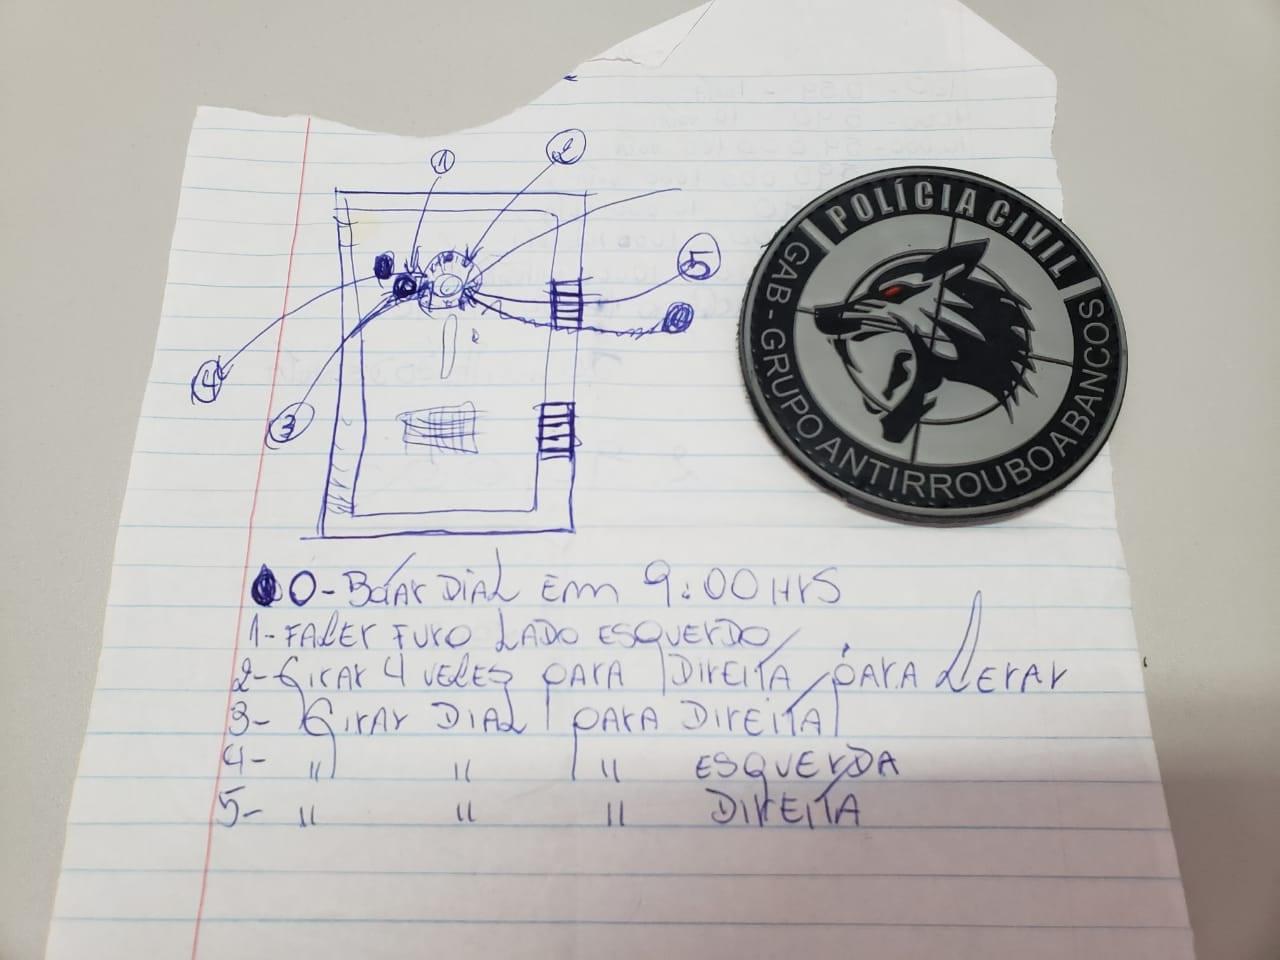 1
2
5
4
3
POLÍCIA CIVIL
GAB - GRUPO ANTIRROUBO A BANCOS
0- BOTAR DIAL EM 9:00 HRS
1- FAZER FURO LADO ESQUERDO
2- GIRAR 4 VEZES PARA DIREITA PARA ZERAR
3- GIRAR DIAL PARA DIREITA
4- " " " ESQUERDA
5- " " " DIREITA